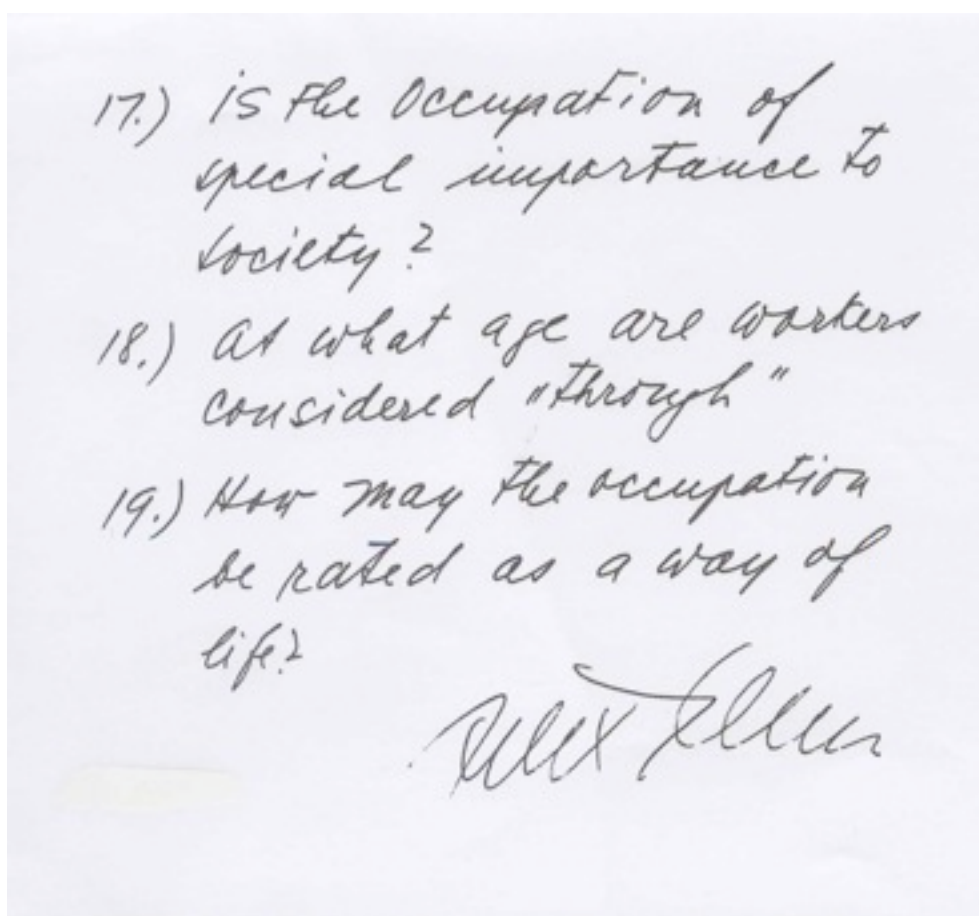 17.) is the Occupation of
special importance to
society?
18.) at what age are workers
considered "through"
19.) How may the occupation
be rated as a way of
life?